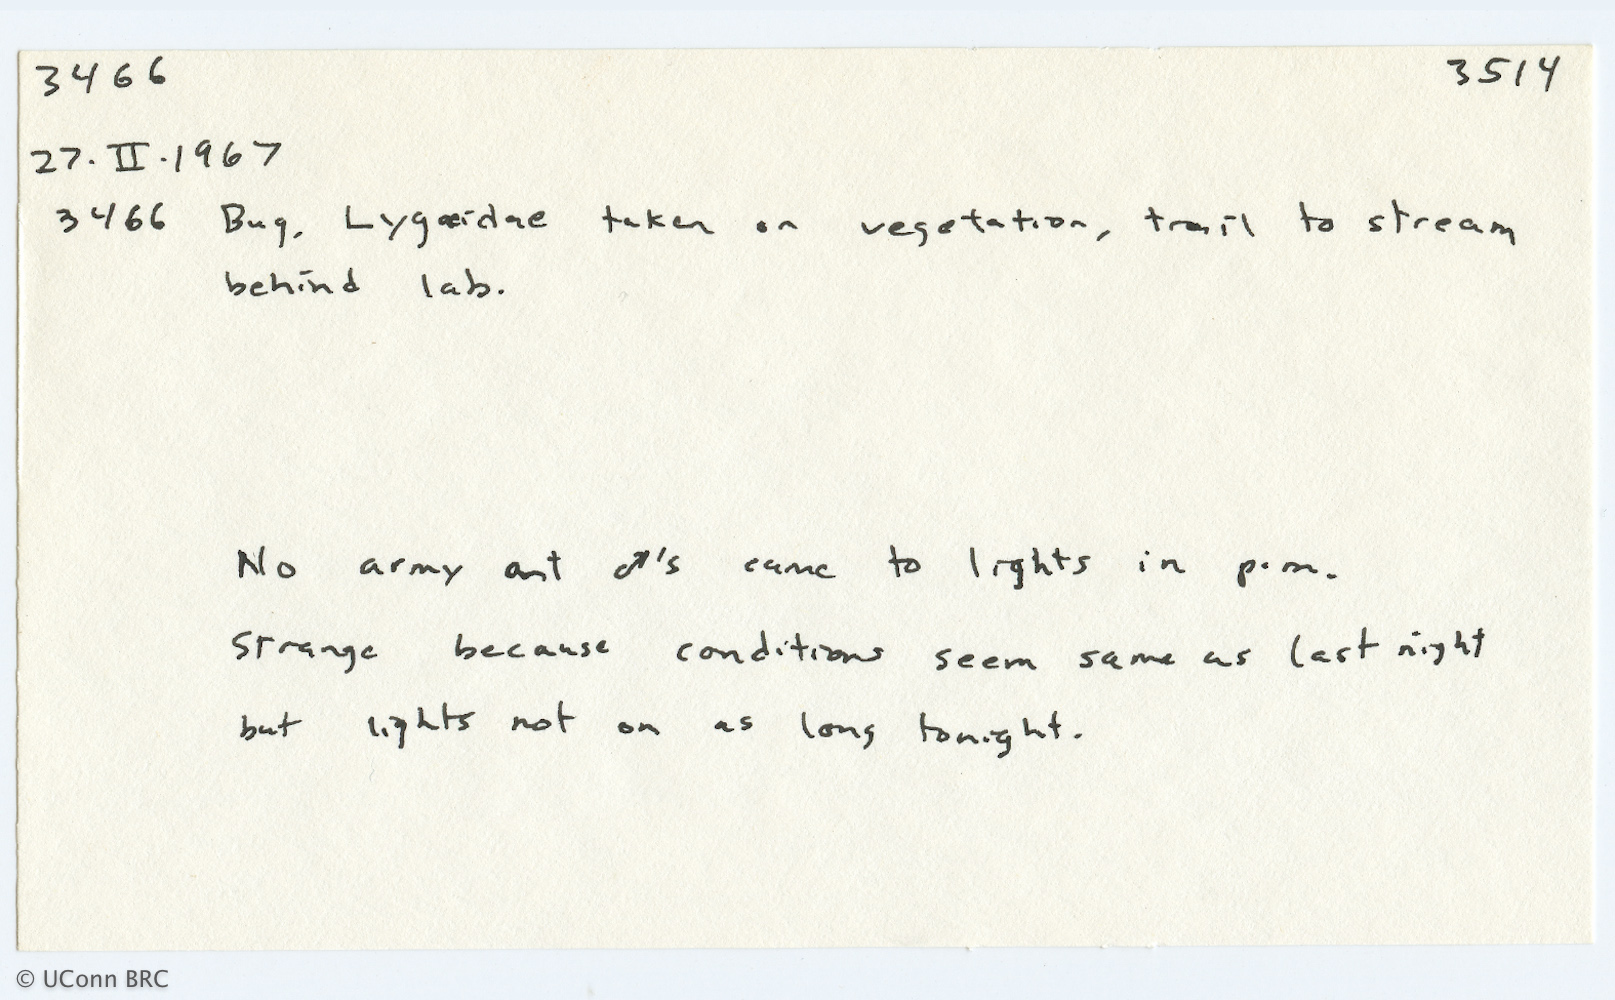 3466 3514
27.II.1967
3466 Bug, Lygaeidae taken on vegetation, trail to stream
behind lab.
No army ant ♂'s came to lights in p.m.
Strange because conditions seem same as last night
but lights not on as long tonight.
© UConn BRC